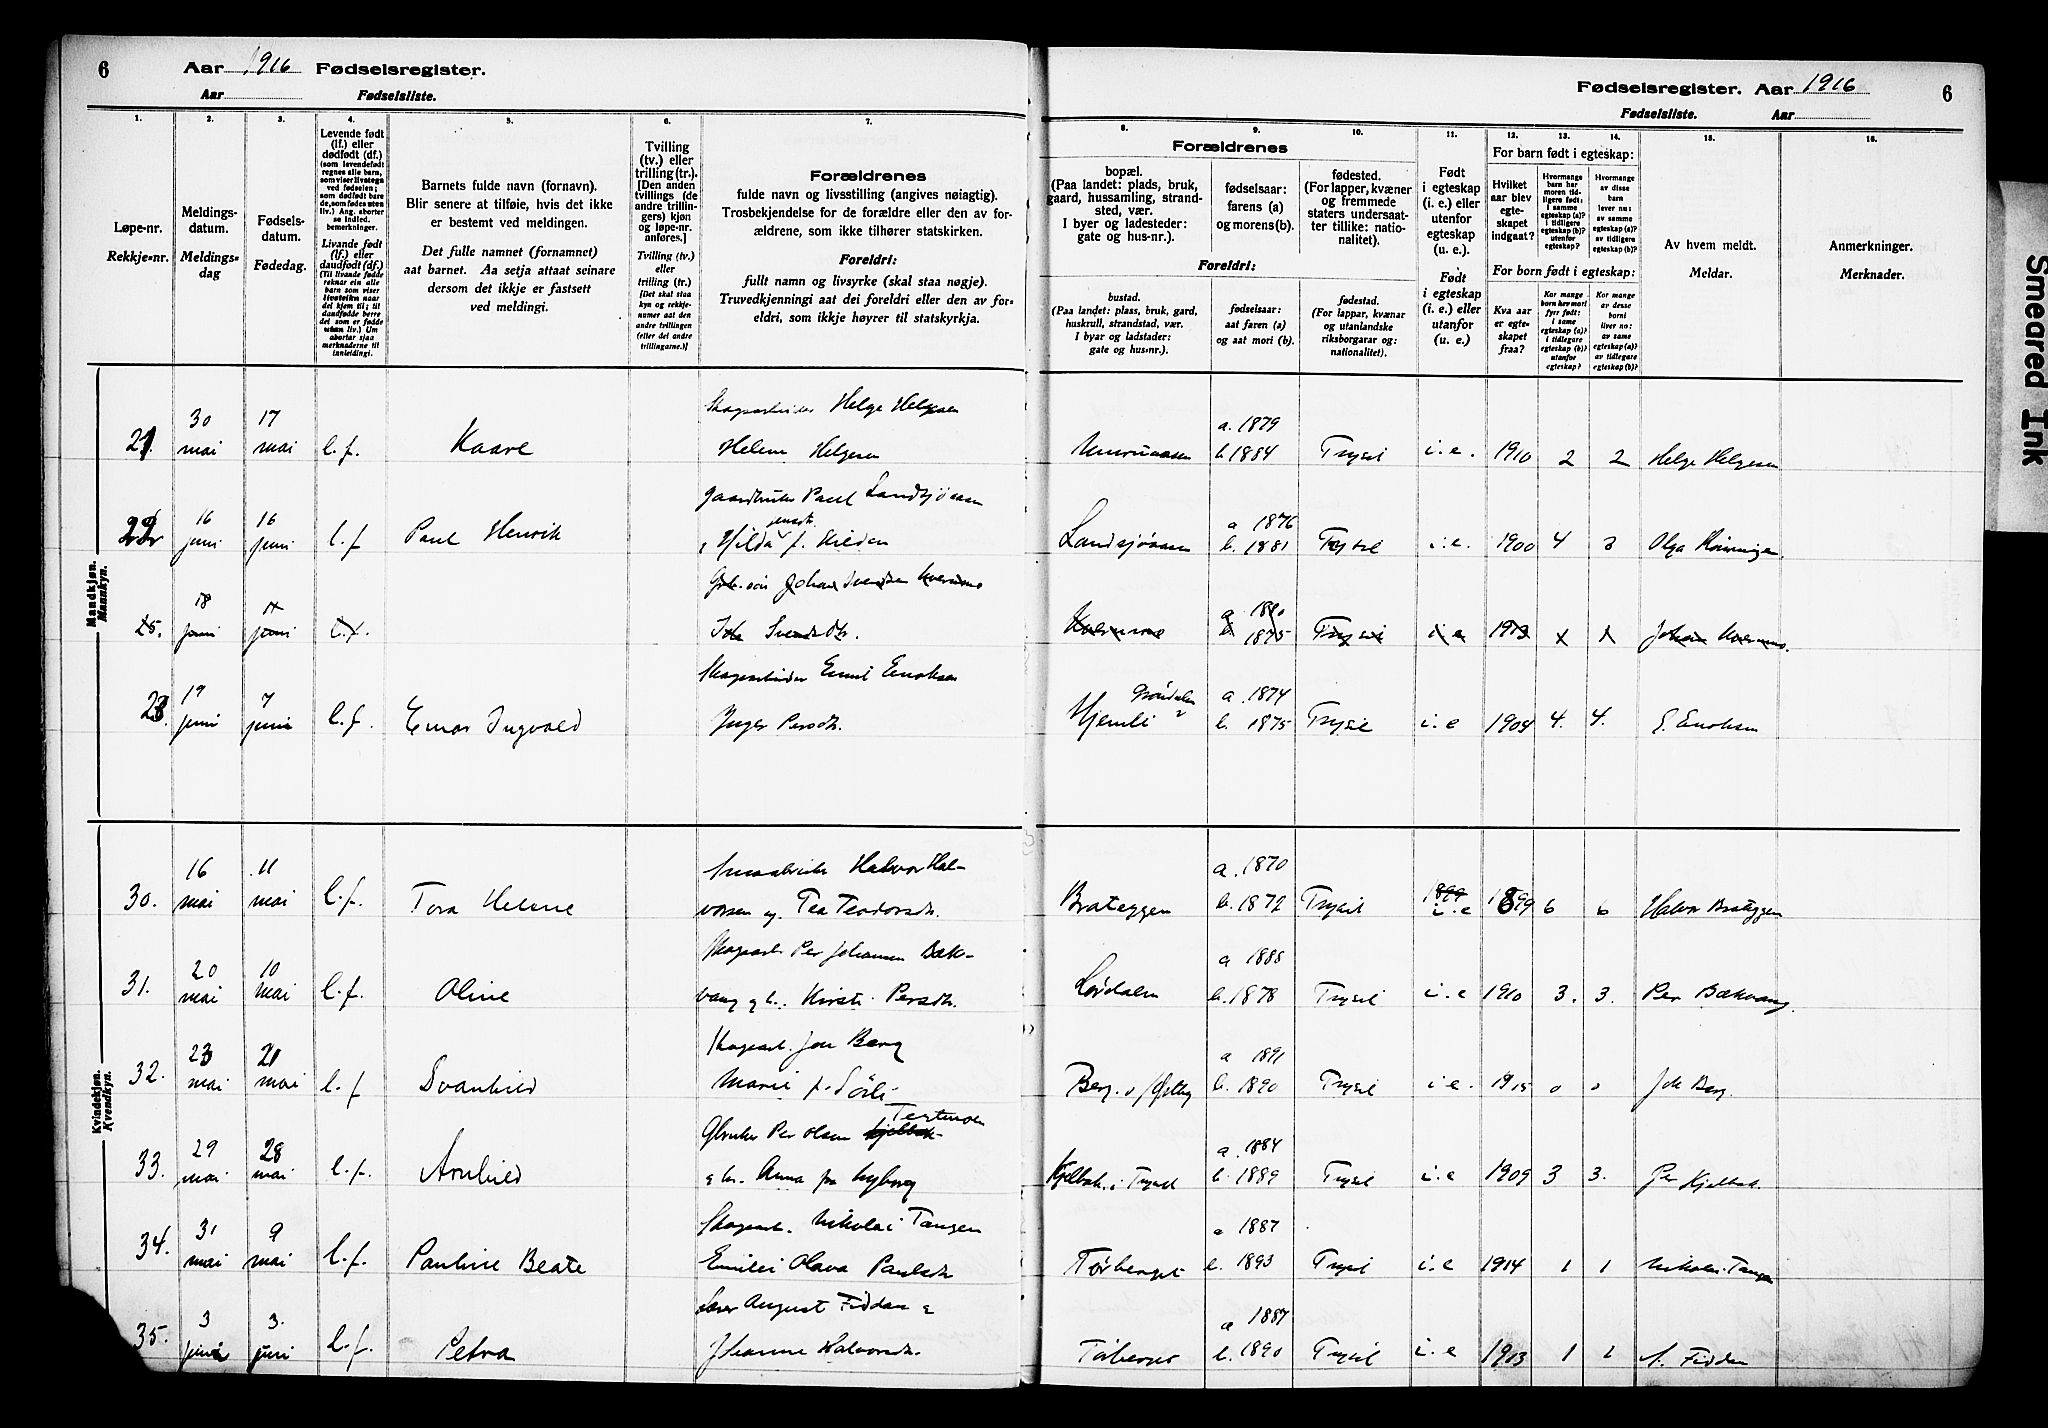 6 Aar 1916 Fødselsregister.
Aar Fødselsliste.
Fødselsregister. Aar 1916 6
Fødselsliste. Aar
1. 2. 3. 4. 5. 6. 7.
8. 9. 10. 11. 12. 13. 14. 15. 16.
Løpe-nr.
Rekkje-nr.
Meldings-
datum.
Meldings-
dag
Fødsels-
datum.
Fødedag.
Levende født
(lf.) eller
dødfødt (df.)
(som levendefødt
regnes alle barn,
som viser livstegn
ved fødselen;
som dødfødt bare
de, som fødes uten
liv.) Ang. aborter
se indled.
bemerkninger.
Livande født
(lf.) eller
daudfødt (df.)
(Til livande fødde
reknar ein alle
born som viser
livsteikn naar
det kjem til; til
daudfødde berre
dei som er fødde
utan liv.) Um
abortar sjaa
merknaderne til
innleidingi.
Barnets fulde navn (fornavn).
Blir senere at tilføie, hvis det ikke
er bestemt ved meldingen.
Det fulle namnet (fornamnet)
aat barnet. Aa setja attaat seinare
dersom det ikkje er fastsett
ved meldingi.
Tvilling
(tv.) eller
trilling (tr.).
[Den anden
tvillings (de
andre trillin-
gers) kjøn
og løpe-nr.
anføres.]
Tvilling (tv.)
eller
trilling (tr.)
[Det skal staa
kyn og rekkje-
numer aat den
andre tvillingen
(eller dei andre
trillingarne.)]
Forældrenes
fulde navn og livsstilling (angives nøiagtig).
Trosbekjendelse for de forældre eller den av for-
ældrene, som ikke tilhører statskirken.
Foreldri:
fullt namn og livsyrke (skal staa nøgje).
Truvedkjenningi aat dei foreldri eller den av for-
eldri, som ikkje høyrer til statskyrkja.
Forældrenes
bopæl.
(Paa landet: plads, bruk,
gaard, hussamling, strand-
sted, vær.
I byer og ladesteder:
gate og hus-nr.).
fødselsaar:
farens (a)
og morens (b).
fødested.
(For lapper, kvæner
og fremmede
staters undersaat-
ter tillike: natio-
nalitet).
Foreldri:
bustad.
(Paa landet: plass, bruk, gard,
huskrull, strandstad, vær.
I byar og ladstader:
gate og hus-nr.).
fødselsaar:
aat faren (a)
og aat mori (b).
fødestad.
(For lappar, kvænar
og utanlandske
riksborgarar og:
nationalitet).
Født
i egteskap
(i. e.) eller
utenfor
egteskap
(u. e.).
Født
i egteskap
(i. e.) eller
utanfor
(u. e.)
For barn født i egteskap:
Hvilket
aar blev
egte-
skapet
indgaat?
Hvormange
barn har
moren tid-
ligere født:
i samme
egteskap (a)?
i tidligere
egteskap (b)?
utenfor
egteskap?
Hvormange
av disse
barn
lever nu:
av samme
egteskap (a)?
av tidligere
egteskap (b)?
For born født i egteskap:
Kva aar
er egte-
skapet
fraa?
Kor mange
born hev mori
fyrr født:
i same
egteskap (a)?
i tidlegare
egteskap (b)?
utanfor
egteskap?
Kor mange
av desse
borni
liver no:
av same
egteskap (a)?
av tidlegare
egteskap (b)?
Av hvem meldt.
Meldar.
Anmerkninger.
Merknader.
Smeared Ink
Mandkjøn.
Mannkyn.
21. 30 mai 17 mai l.f. Kaare
Skogsarbeider Helge Helgesen
Helene Helgesen
a. 1879
b. 1884 Trysil i.e. 1910 2 2 Helge Helgesen
22 16 juni 16 juni l.f Paul Henrik
gaardbruker Paul Landsjøaasen
Hilda f. Kilden
Landsjøaasen a 1876
b. 1881 Trysil i.e. 1900 4 3 Olga
25. 18 juni juni l.f.
Johan Svendsen
Trysil i e 1913 Johan
23. 19 juni 7 juni l.f. Einar Ingvald
Skogsarbeider Emil Enoksen
Inger Persdtr.
Hjemli a. 1874
b. 1875 Trysil i.e 1904 4. 4. E. Enoksen
Kvindekjøn.
Kvendkyn.
30. 16 mai 11 mai l.f. Tora Helene
Smaabruker Halvor Hal-
vorsen og Tea Teodorsdtr.
Brateggen a. 1870
b. 1872 Trysil 1899 i.e 1899 6 6 Halvor Brateggen
31. 20 mai 10 mai l.f. Oline
Skogsarb. Per Johansen Bæk-
vang og h. Kirsti Persdtr.
Lørdalen a 1888
b. 1878 Trysil i.e 1910 3. 3. Per Bækvang.
32. 23 mai 21 mai l.f Svanhild
Skogsarb. Jon Berg
Marie f. Sørli
Berg a 1891
b. 1890 Trysil i e. 1915 0 0 Jon Berg.
33. 29 mai 28 mai l.f. Arnhild
Gbruker Per Olsen Kjelbak
& h. Anna fra Nyborg
Kjelbak. i Trysil a. 1884
b. 1889 Trysil i.e 1909 3 3. Per Kjelbak.
34. 31 mai 9 mai l.f. Pauline Beate
Skogsarb. Nikolai Tangen
Emilie Olava Paulsdtr
Tørberget a 1887
b. 1893 Trysil i.e 1914 1 1 Nikolai Tangen
35. 3 juni 3. juni l.f. Petra
Lærer August Fidden &
Johanne Halvorsdtr.
Tørberget a 1887
b. 1890 Trysil i.e 1913 1 1 A. Fidden